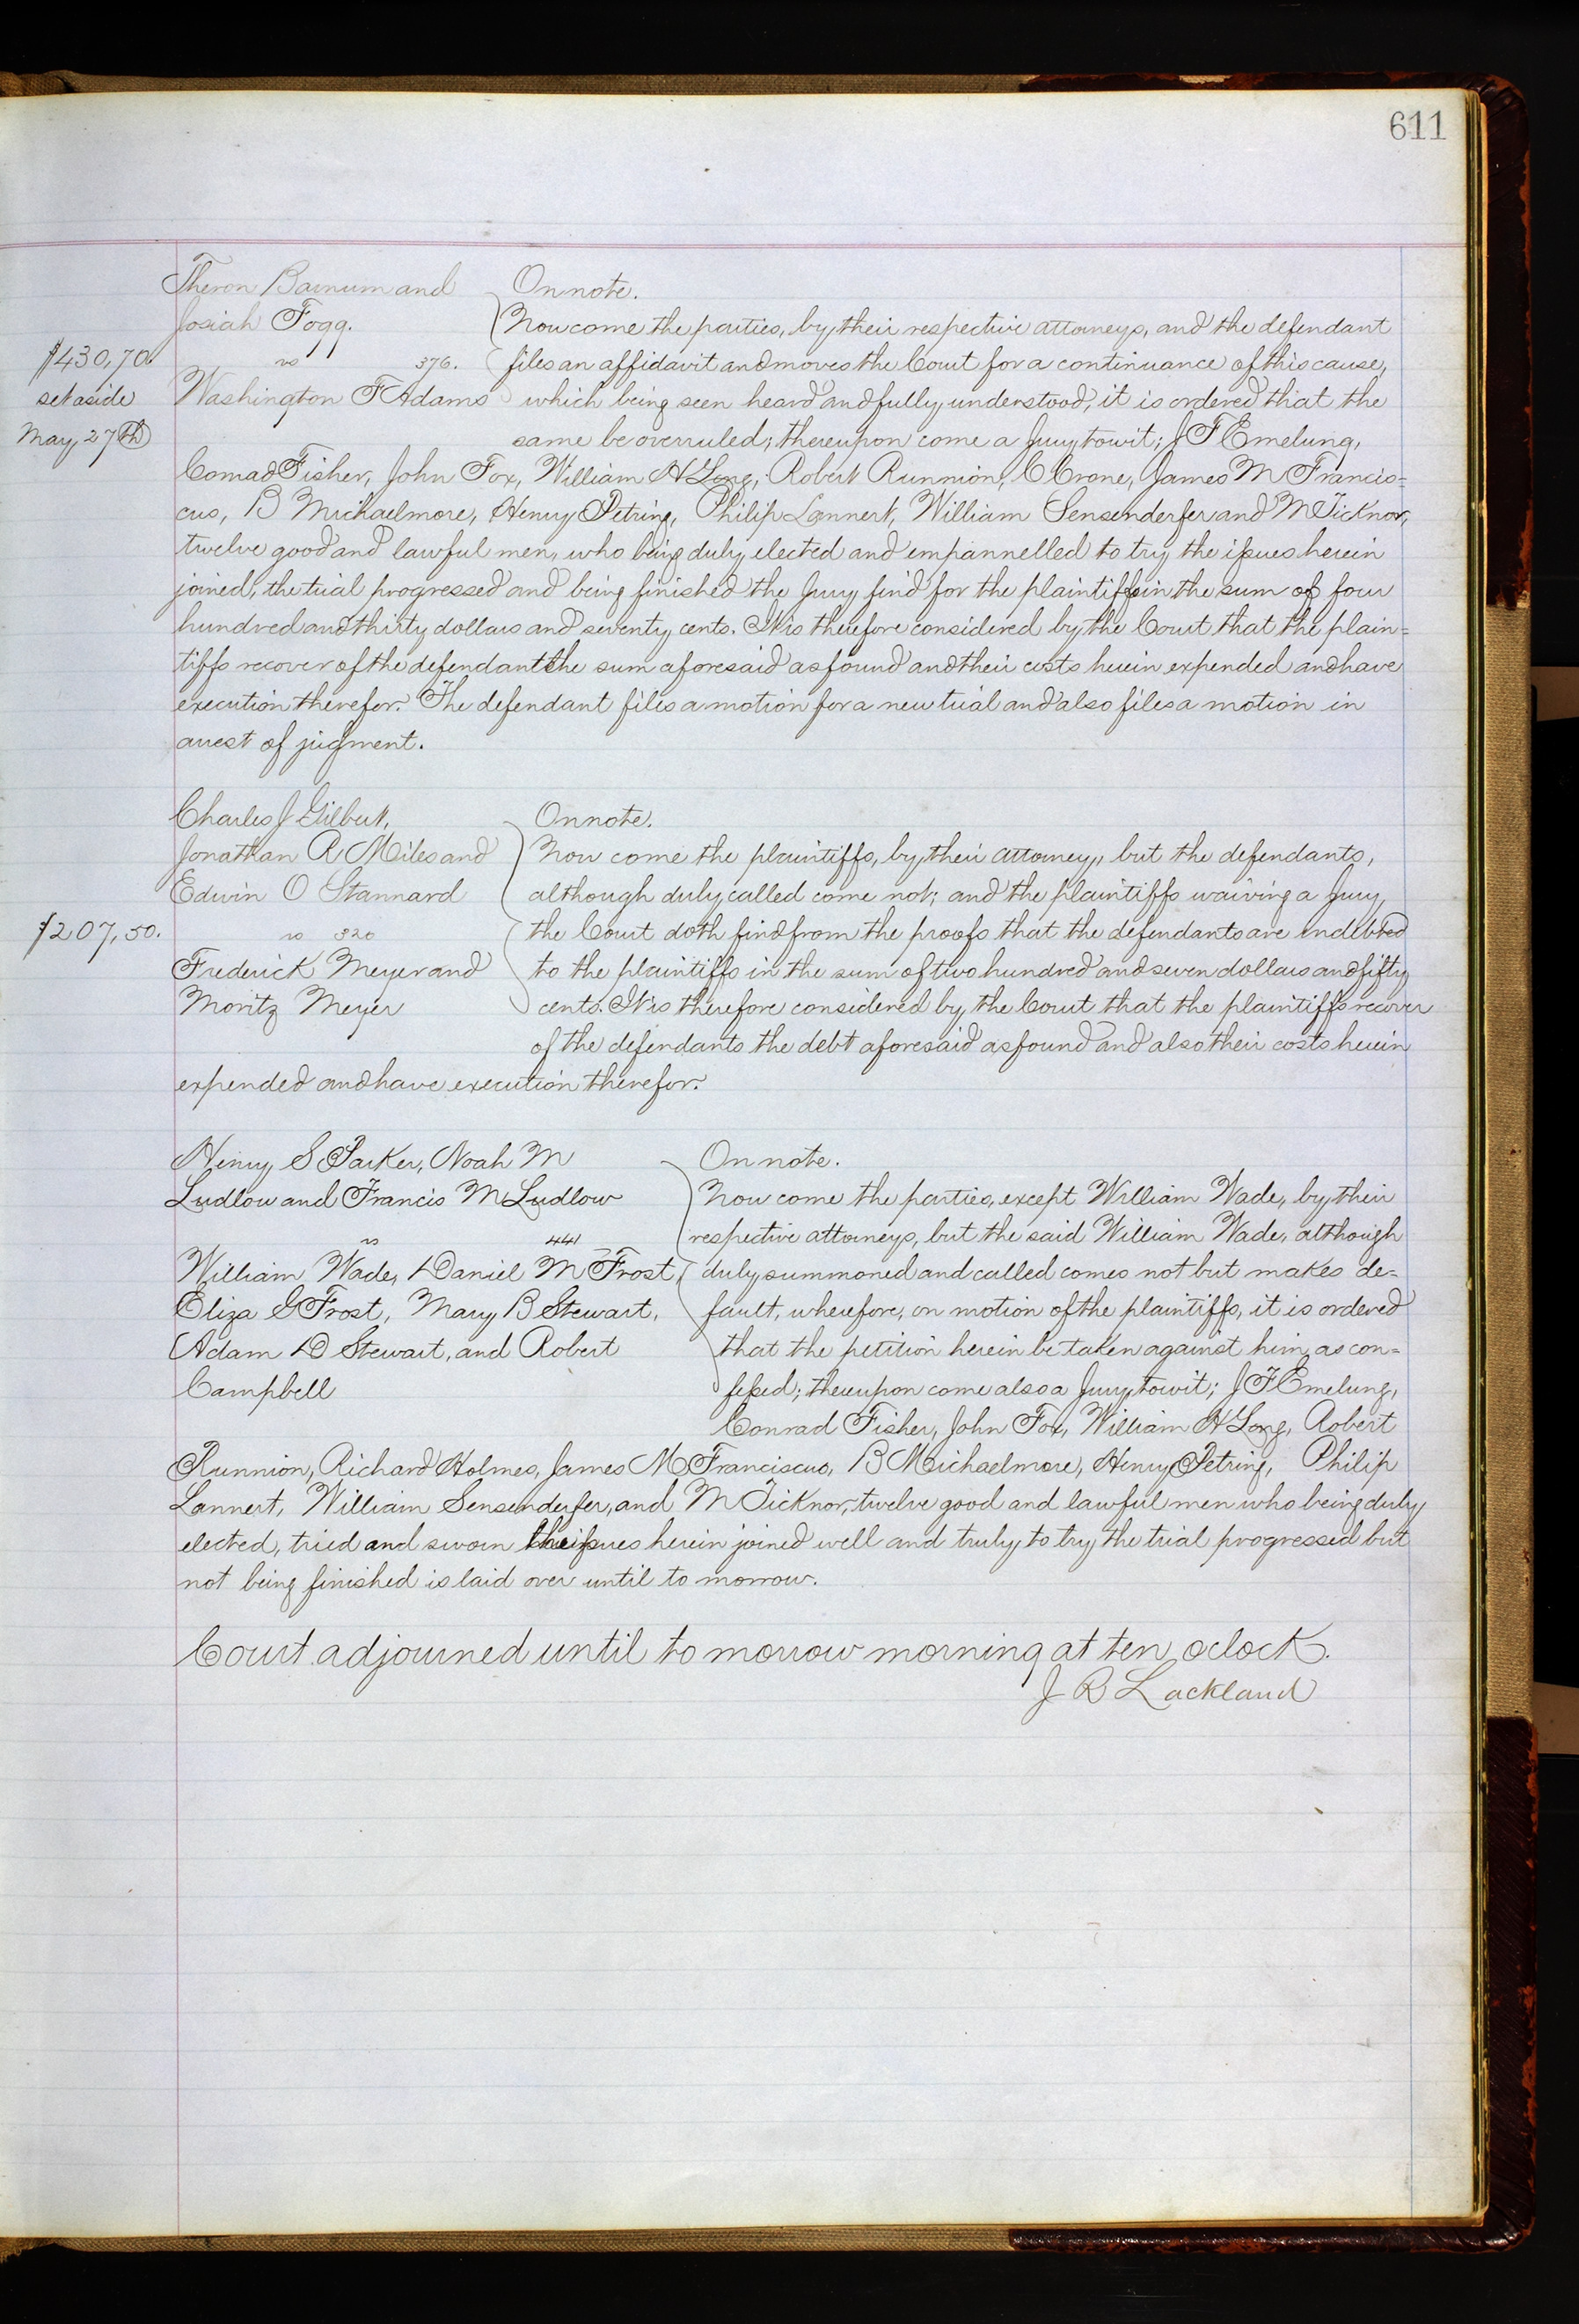 611
Theron Barnum and
Josiah Fogg.
vs 376.
Washington F Adams
$430,70.
set aside
May 27th
On note.
Now come the parties, by their respective attorneys, and the defendant
files an affidavit and moves the Court for a continuance of this cause,
which being seen heard and fully understood, it is ordered that the
same be overruled; thereupon come a Jury towit; J F Emelung,
Conrad Fisher, John Fox, William H Long, Robert Runnion, C Crone, James M Francis=
cus, B Michaelmore, Henry Petring, Philip Lannert, William Sensenderfer and M Ticknor,
twelve good and lawful men, who being duly elected and empannelled to try the issues herein
joined, the trial progressed and being finished the Jury find for the plaintiffs in the sum of four
hundred and thirty dollars and seventy cents. It is therefore considered by the Court that the plain=
tiffs recover of the defendant the sum aforesaid as found and their costs herein expended and have
execution therefor. The defendant files a motion for a new trial and also files a motion in
arrest of jugment.
Charles J Gilbert,
Jonathan R Miles and
Edwin O Stannard
vs 320
Frederick Meyer and
Moritz Meyer
$207,50.
On note.
Now come the plaintiffs, by their attorney, but the defendants,
although duly called come not; and the plaintiffs waiving a Jury,
the Court doth find from the proofs that the defendants are indebted
to the plaintiffs in the sum of two hundred and seven dollars and fifty
cents. It is therefore considered by the Court that the plaintiffs recover
of the defendants the debt aforesaid as found and also their costs herein
expended and have execution therefor.
Henry S Parker, Noah M
Ludlow and Francis M Ludlow
vs 441
William Wade, Daniel M Frost
Eliza G Frost, Mary B Stewart,
Adam D Stewart, and Robert
Campbell
On note.
Now come the parties, except William Wade, by their
respective attorneys, but the said William Wade, although
duly summoned and called comes not but makes de=
fault, wherefore, on motion of the plaintiffs, it is ordered
that the petition herein be taken against him as con=
fessed; thereupon come also a Jury, towit; J F Emelung,
Conrad Fisher, John Fox, William H Long, Robert
Runnion, Richard Holmes, James M Franciscus, B Michaelmore, Henry Petring, Philip
Lannert, William Sensenderfer, and M Ticknor, twelve good and lawful men who being duly
elected, tried and sworn the issues herein joined well and truly to try the trial progressed but
not being finished is laid over until to morrow.
Court adjourned until to morrow morning at ten oclock.
J R Lackland